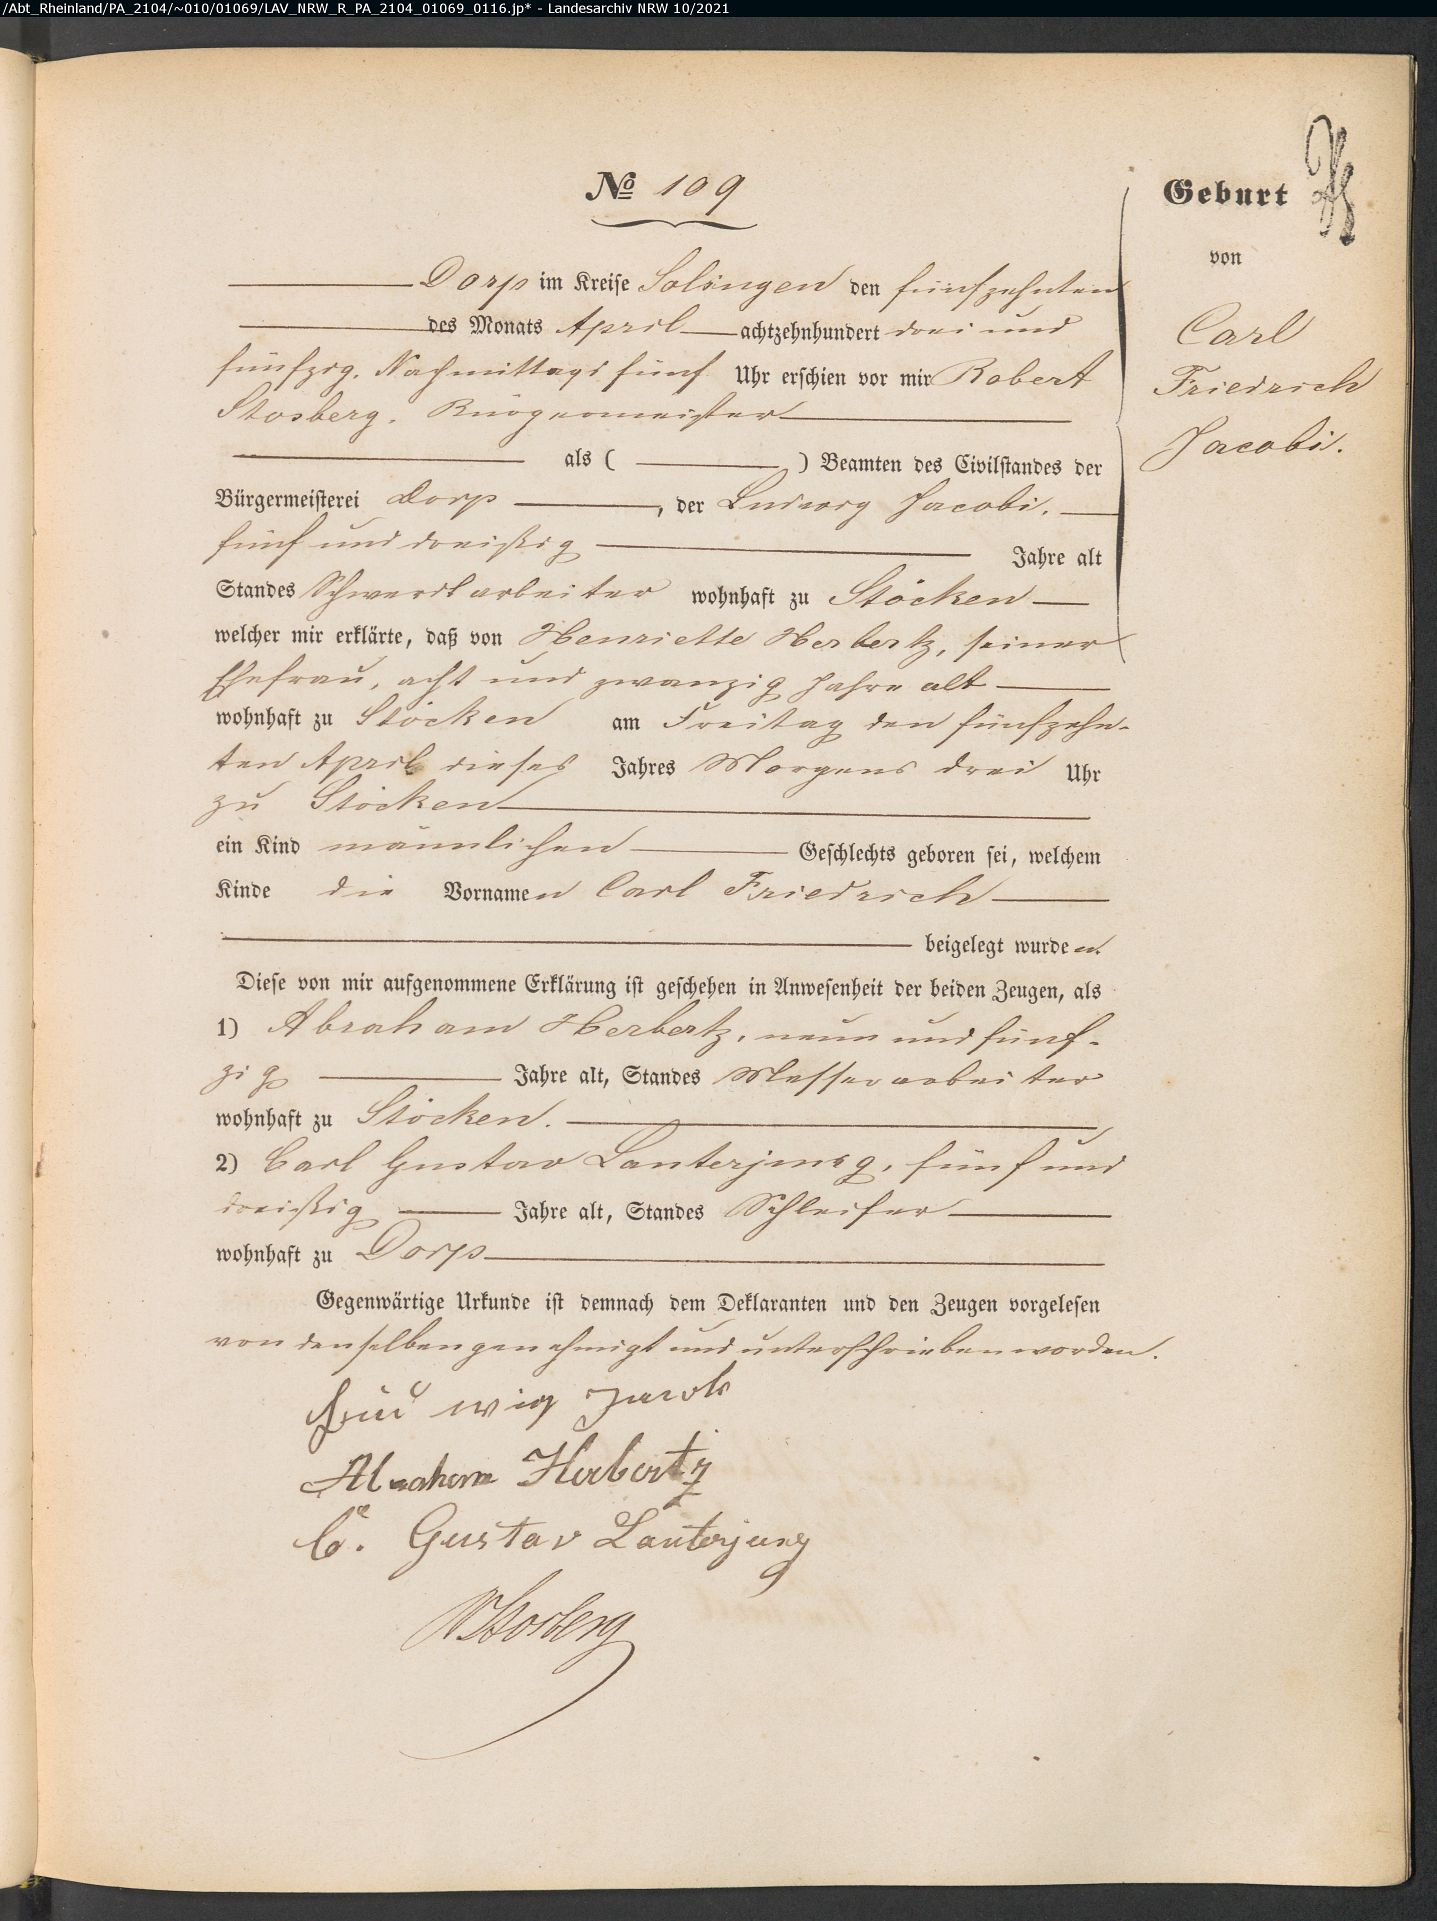 /Abt_Rheinland/PA_2104/~010/01069/LAV_NRW_R_PA_2104_01069_0116.jp* - Landesarchiv NRW 10/2021
№ 109
Geburt
von
Carl
Friedrich
Jacobi.
Dorp im Kreise Solingen den fünfzehnten
des Monats April achtzehnhundert drei und
fünfzig, Nachmittags fünf Uhr erschien vor mir Robert
Stosberg, Bürgermeister
als ( ) Beamten des Civilstandes der
Bürgermeisterei Dorp , der Ludwig Jacobi,
fünf und dreißig Jahre alt
Standes Schwerdtarbeiter wohnhaft zu Stöcken
welcher mir erklärte, daß von Henriette Herbertz, seiner
Ehefrau, acht und zwanzig Jahre alt
wohnhaft zu Stöcken am Freitag den fünfzehn-
ten April dieses Jahres Morgens drei Uhr
zu Stöcken
ein Kind männlichen Geschlechts geboren sei, welchem
Kinde die Vornamen Carl Friedrich
beigelegt wurden.
Diese von mir aufgenommene Erklärung ist geschehen in Anwesenheit der beiden Zeugen, als
1) Abraham Herbertz, neun und fünf-
zig Jahre alt, Standes Messerarbeiter
wohnhaft zu Stöcken.
2) Carl Gustav Lauterjung, fünf und
dreißig Jahre alt, Standes Schleifer
wohnhaft zu Dorp
Gegenwärtige Urkunde ist demnach dem Deklaranten und den Zeugen vorgelesen
von denselben genehmigt und unterschrieben worden.
Ludwig Jacobi
Abraham Herbertz
C. Gustav Lauterjung
RStosberg